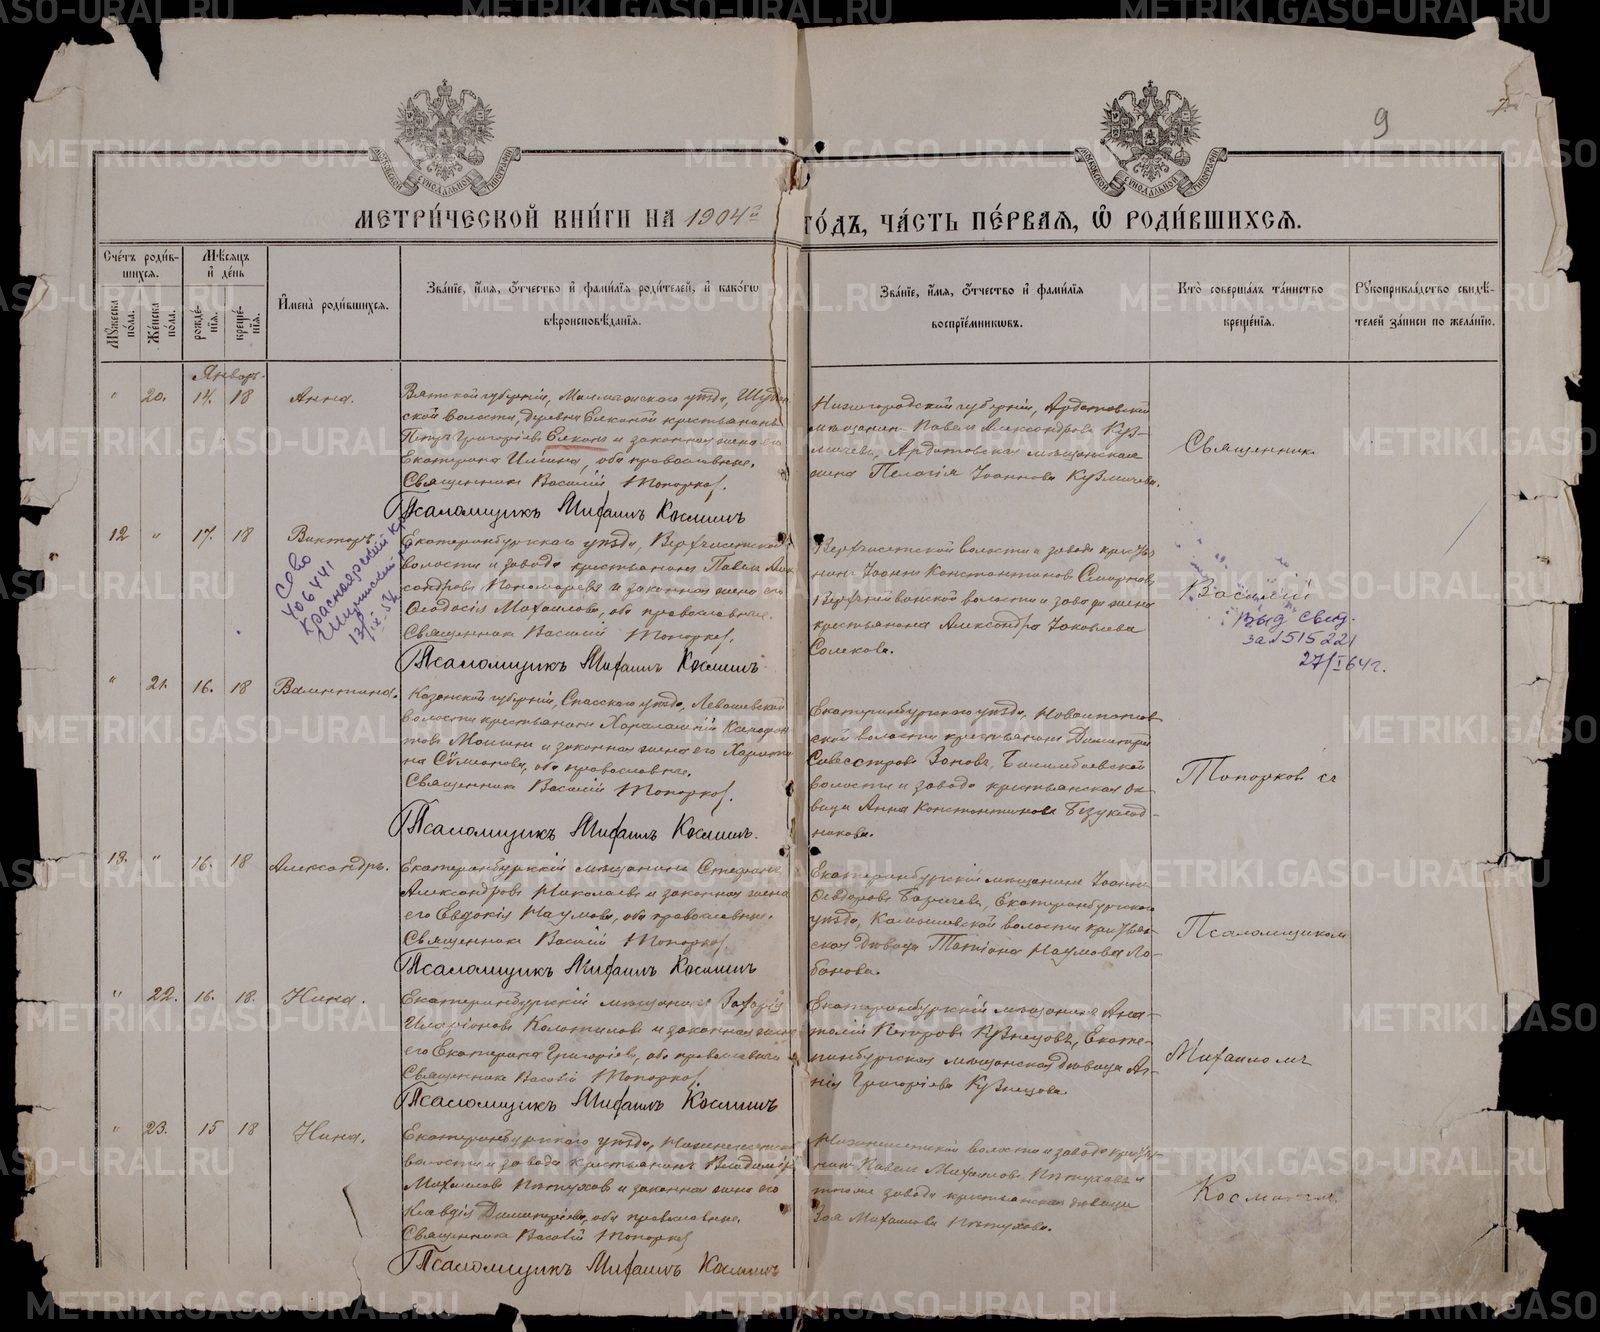 9
МОСКОВСКОЙ СѴНОДАЛЬНОЙ ТИПОГРАФІИ
МОСКОВСКОЙ СѴНОДАЛЬНОЙ ТИПОГРАФІИ
МЕТРИ́ЧЕСКОЙ КНИ́ГИ НА 1904й ГО́ДЪ, ЧА́СТЬ ПЕ́РВАЯ, Ѡ҆ РОДИ́ВШИХСЯ.
Сче́тъ роди́вшихся.
Мꙋ́жеска по́ла.
Же́нска по́ла.
Мѣ́сяцъ и҆ де́нь
рожде́нїя.
креще́нїя.
И҆мена̀ роди́вшихся.
Зва́нїе, и҆́мя, ѻ҆́тчество и҆ фами́лїя роди́телей, и҆ како́гѡ вѣроисповѣ́данїя.
Зва́нїе, и҆́мя, ѻ҆́тчество и҆ фами́лїя воспрїе́мникѡвъ.
Кто̀ соверша́лъ та́инство креще́нїя.
Рꙋкоприкла́дство свидѣ́телей за́писи по жела́нїю.
Январь.
" 20. 14. 18 Анна.
Вятской губерніи, Малмыжскаго уѣзда,
ской волости, деревни крестьянинъ
Петръ Григорьевъ и законная жена его
Екатерина Ильина, оба православные.
Священникъ Василій Топорковъ.
Псаломщикъ Михаилъ Косминъ
Нижегородской губерніи, Ардатовскій
мѣщанинъ Павелъ Александровъ Куз-
мичевъ, Ардатовская мѣщанская
жена Пелагія Іоаннова Кузмичева.
Священник
12 " 17. 18 Викторъ.
Екатеринбургскаго уѣзда, Верхисетской
волости и завода крестьянинъ Павелъ Алек-
сандровъ Пономаревъ и законная жена его
Ѳеодосія Михаилова, оба православные.
Священникъ Василій Топорковъ.
Псаломщикъ Михаилъ Косминъ.
Верхисетской волости и завода крестья-
нинъ Іоаннъ Константиновъ Смирновъ,
волости и завода жена
крестьянина Александра Іаковлева
Василій
406441
Красноярский кр
13/IX-54
Выд свид.
за 1515221
27/I 64 г.
" 21. 16. 18 Валентина.
Казанской губерніи, Спасскаго уѣзда, Левашевской
волости крестьянинъ
и законная жена его
на Сѵмеонова, оба православные.
Священникъ Василій Топорковъ.
Псаломщикъ Михаилъ Косминъ.
Екатеринбургскаго уѣзда, Новоипатов-
ской волости крестьянинъ Димитрій
Сивестровъ Зоновъ, Билимбаевской
волости и завода крестьянская дѣ-
вица Анна Константинова Безуклад-
никова.
Топорков съ
13. " 16. 18 Александръ.
Екатеринбургскій мѣщанинъ Стефанъ
Александровъ Николаевъ и законная жена
его Евдокія Наумова, оба православные.
Священникъ Василій Топорковъ.
Псаломщикъ Михаилъ Косминъ
Екатеринбургскій мѣщанинъ Іоаннъ
Ѳеодоровъ Екатеринбургскаго
уѣзда, Камышевской волости крестьян-
ская дѣвица Татіана Наумова Ло-
банова.
Псаломщиком
" 22. 16. 18. Нина.
Екатеринбургскій мѣщанинъ Захарія
Иларіоновъ Колотиловъ и законная жена
его Екатерина Григоріева, оба православные.
Священникъ Василій Топорковъ.
Псаломщикъ Михаилъ Косминъ
Екатеринбургскій мѣщанинъ Ана-
толій Петровъ Кузнецовъ, Екате-
ринбургская мѣщанская дѣвица Ан-
нія Григоріева Кузнецова.
Михаиломъ
" 23. 15 18 Нина.
Екатеринбургскаго уѣзда,
волости и завода крестьянинъ Владиміръ
Михаиловъ Пѣтуховъ и законная жена его
Клавдія Димитріева, оба православные.
Священникъ Василій Топорковъ
Псаломщикъ Михаилъ Косминъ
волости и завода крестья-
нинъ Павелъ Михаиловъ Пѣтуховъ и
завода крестьянская дѣвица
Зоя Михаилова Пѣтухова.
Косминым
METRIKI.GASO-URAL.RU